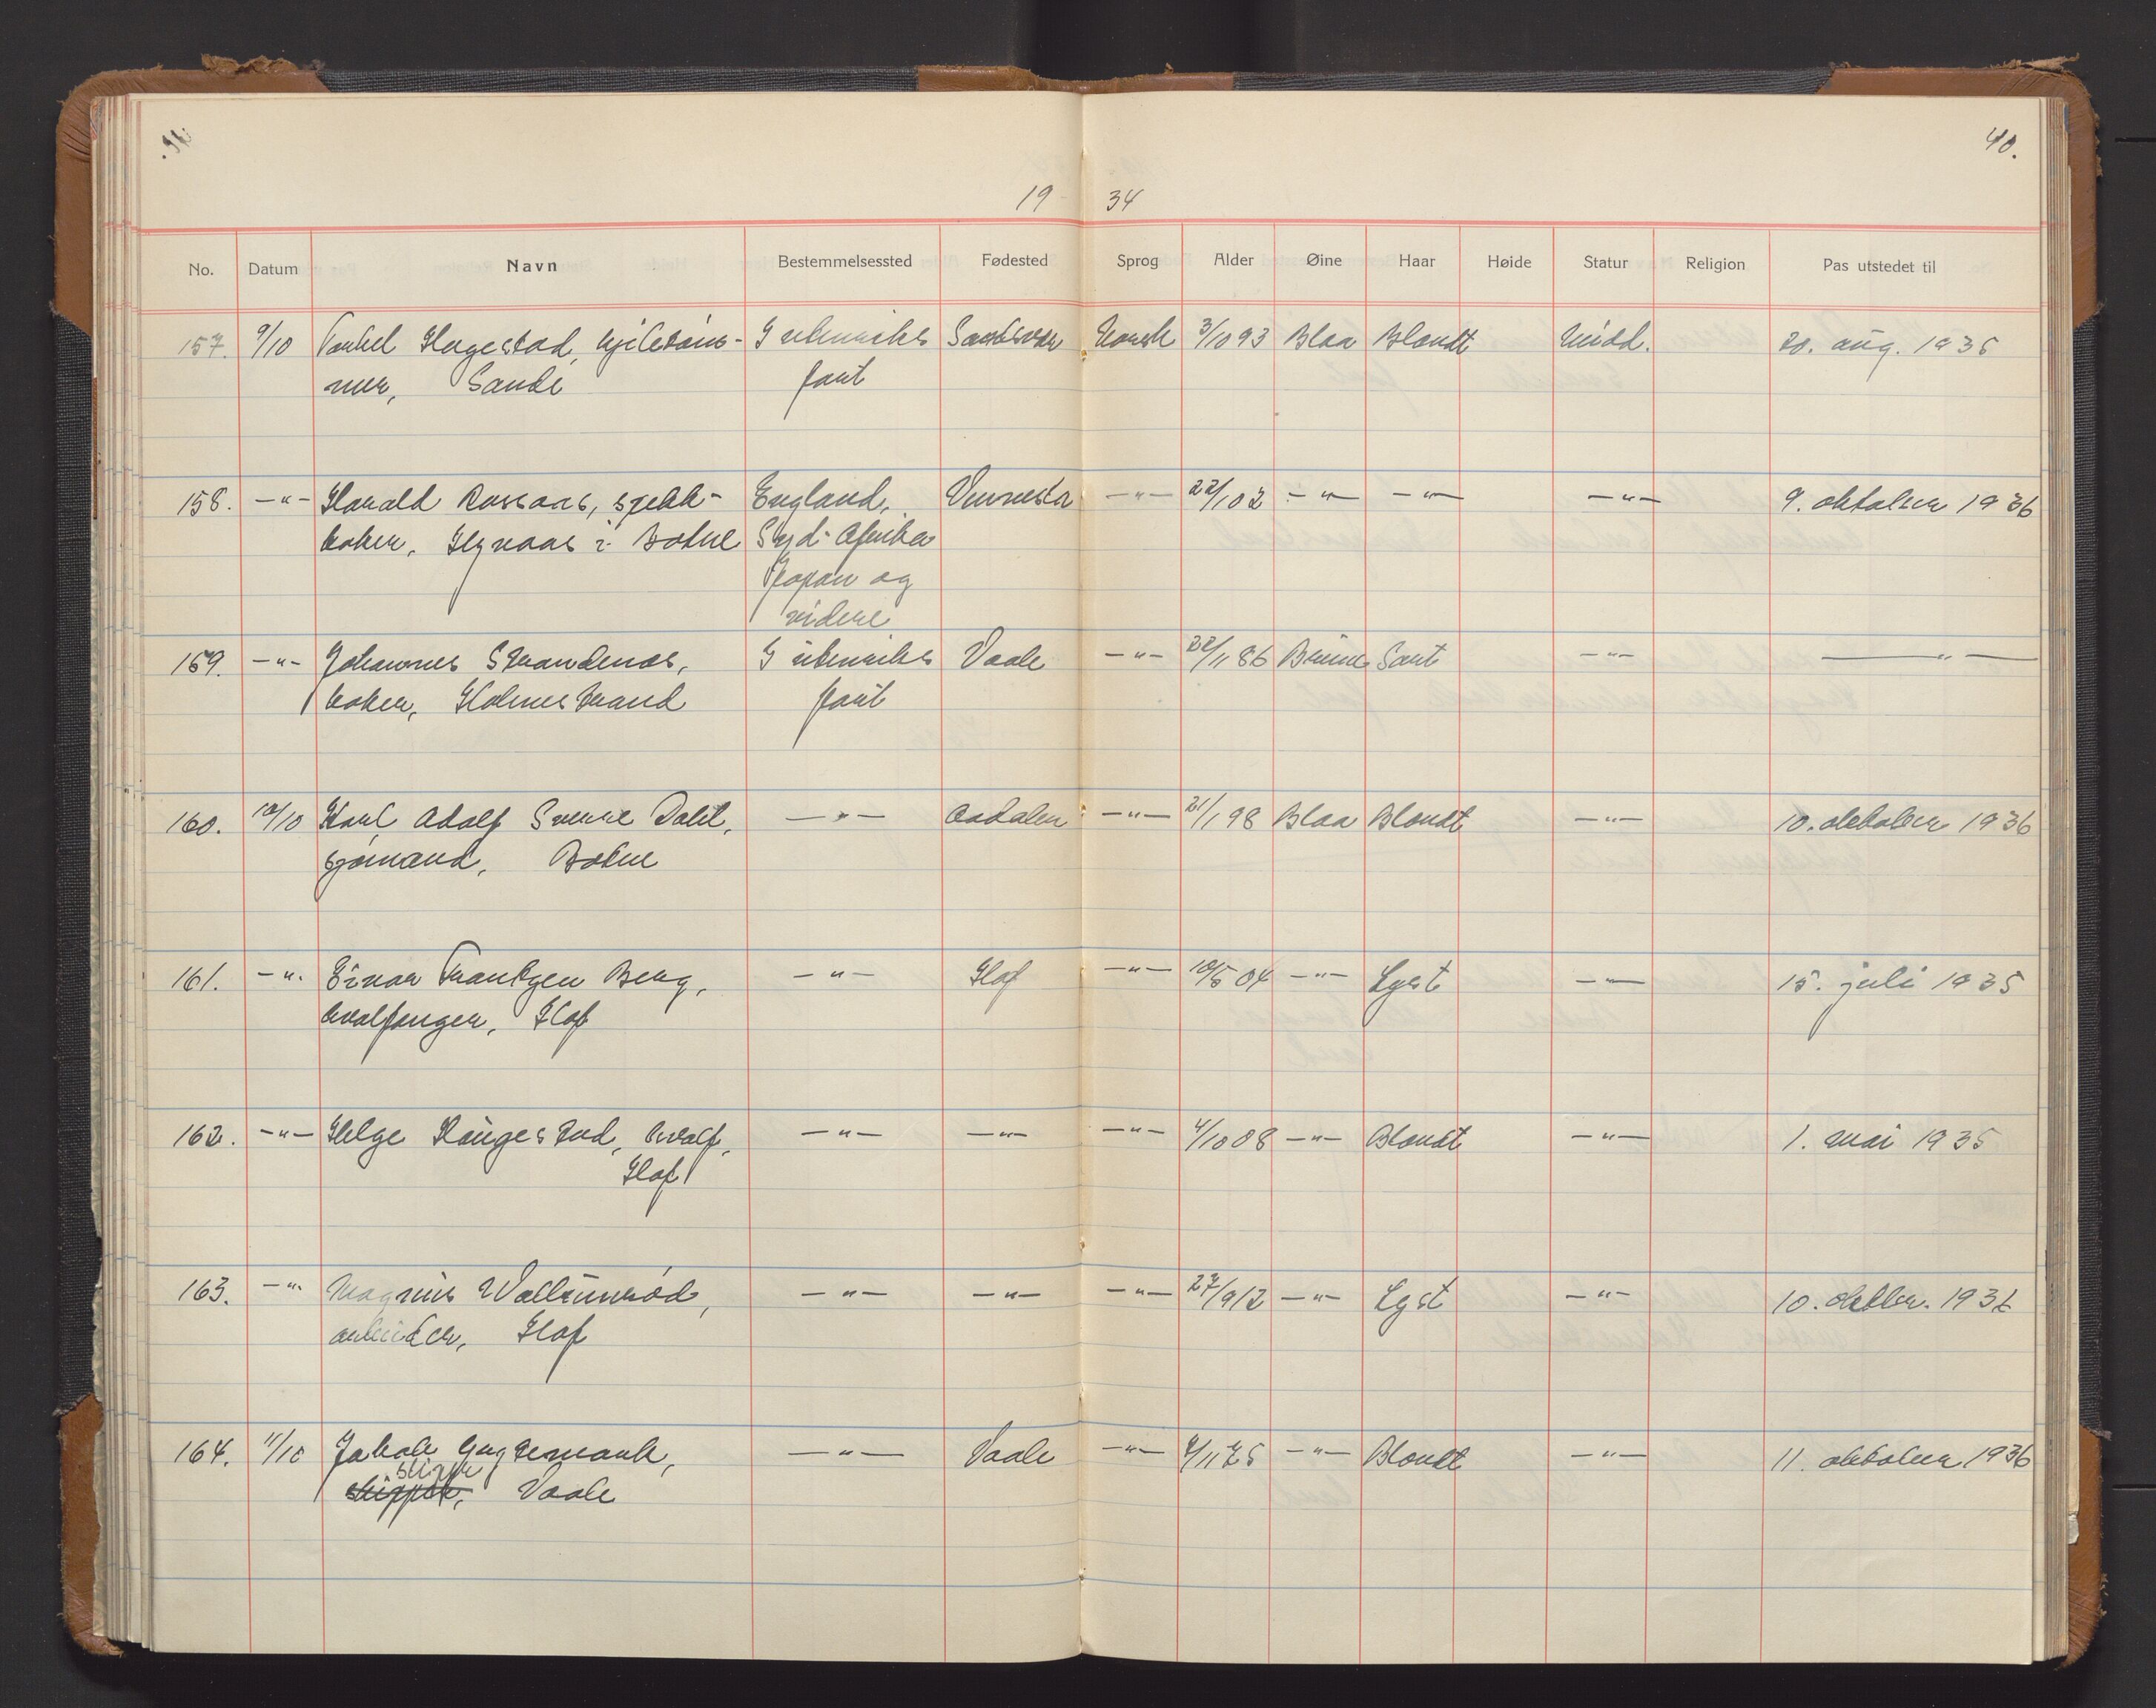 40.
19 34
No. Datum Navn Bestemmelsessted Fødested Sprog Alder Øine Haar Høide Statur Religion Pas utstedet til
157. 9/10 Torkel Hagestad, hjeletøm- I utenriks Sandsvær Norsk 3/10 93 Blaa Blondt Midd. 20. aug. 1935
mer, Sande fart
158. -"- Harald Rossaas, spekk- England, Vennesla -"- 22/1 02 -"- -"- -"- 9. oktober 1936
koker, i Botne Syd-Afrika
Japan og
videre
159. -"- Johannes Strandenæs, I utenriks Vaale -"- 22/11 86 Brune Sort -"- -"-
koker, Holmestrand fart
160. 10/10 Karl Adolf Sverre Dahl, -"- Aadalen -"- 21/1 98 Blaa Blondt -"- 10. oktober 1936
sjømand, Botne
161. -"- Einar Frantzen Berg, -"- Hof -"- 10/5 04 -"- Lyst -"- 15. juli 1935
hvalfanger, Hof
162. -"- Helge Haugestad, hvalf, -"- -"- -"- 4/10 08 -"- Blondt -"- 1. mai 1935
Hof
163. -"- Magnus Wallumrød, -"- -"- -"- 27/9 12 -"- Lyst -"- 10. oktbr. 1936
arbeider, Hof
164. 11/10 Jakob -"- Vaale -"- -"- Blondt -"- 11. oktober 1936
Vaale